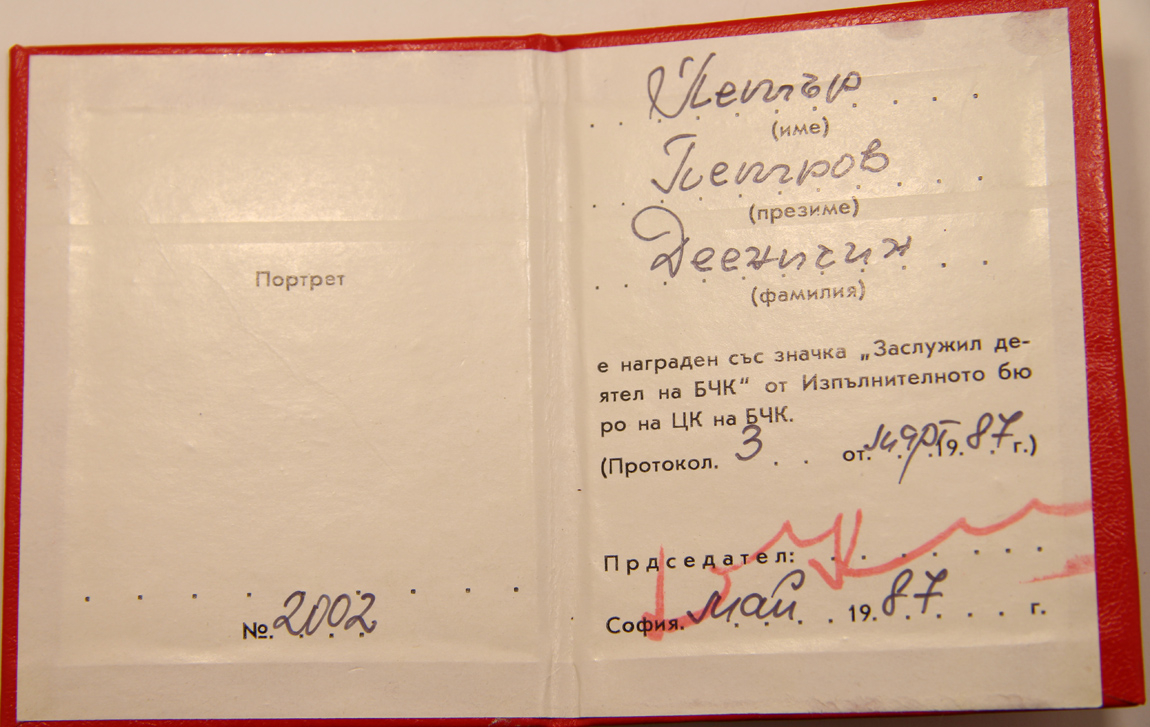 Портрет
№. 2002
Петър
(име)
Петров
(презиме)
(фамилия)
е награден със значка „Заслужил де-
ятел на БЧК“ от Изпълнителното бю
ро на ЦК на БЧК.
(Протокол. 3 от. март 19.87 г.)
Прдседател:
София. май 19.87 г.